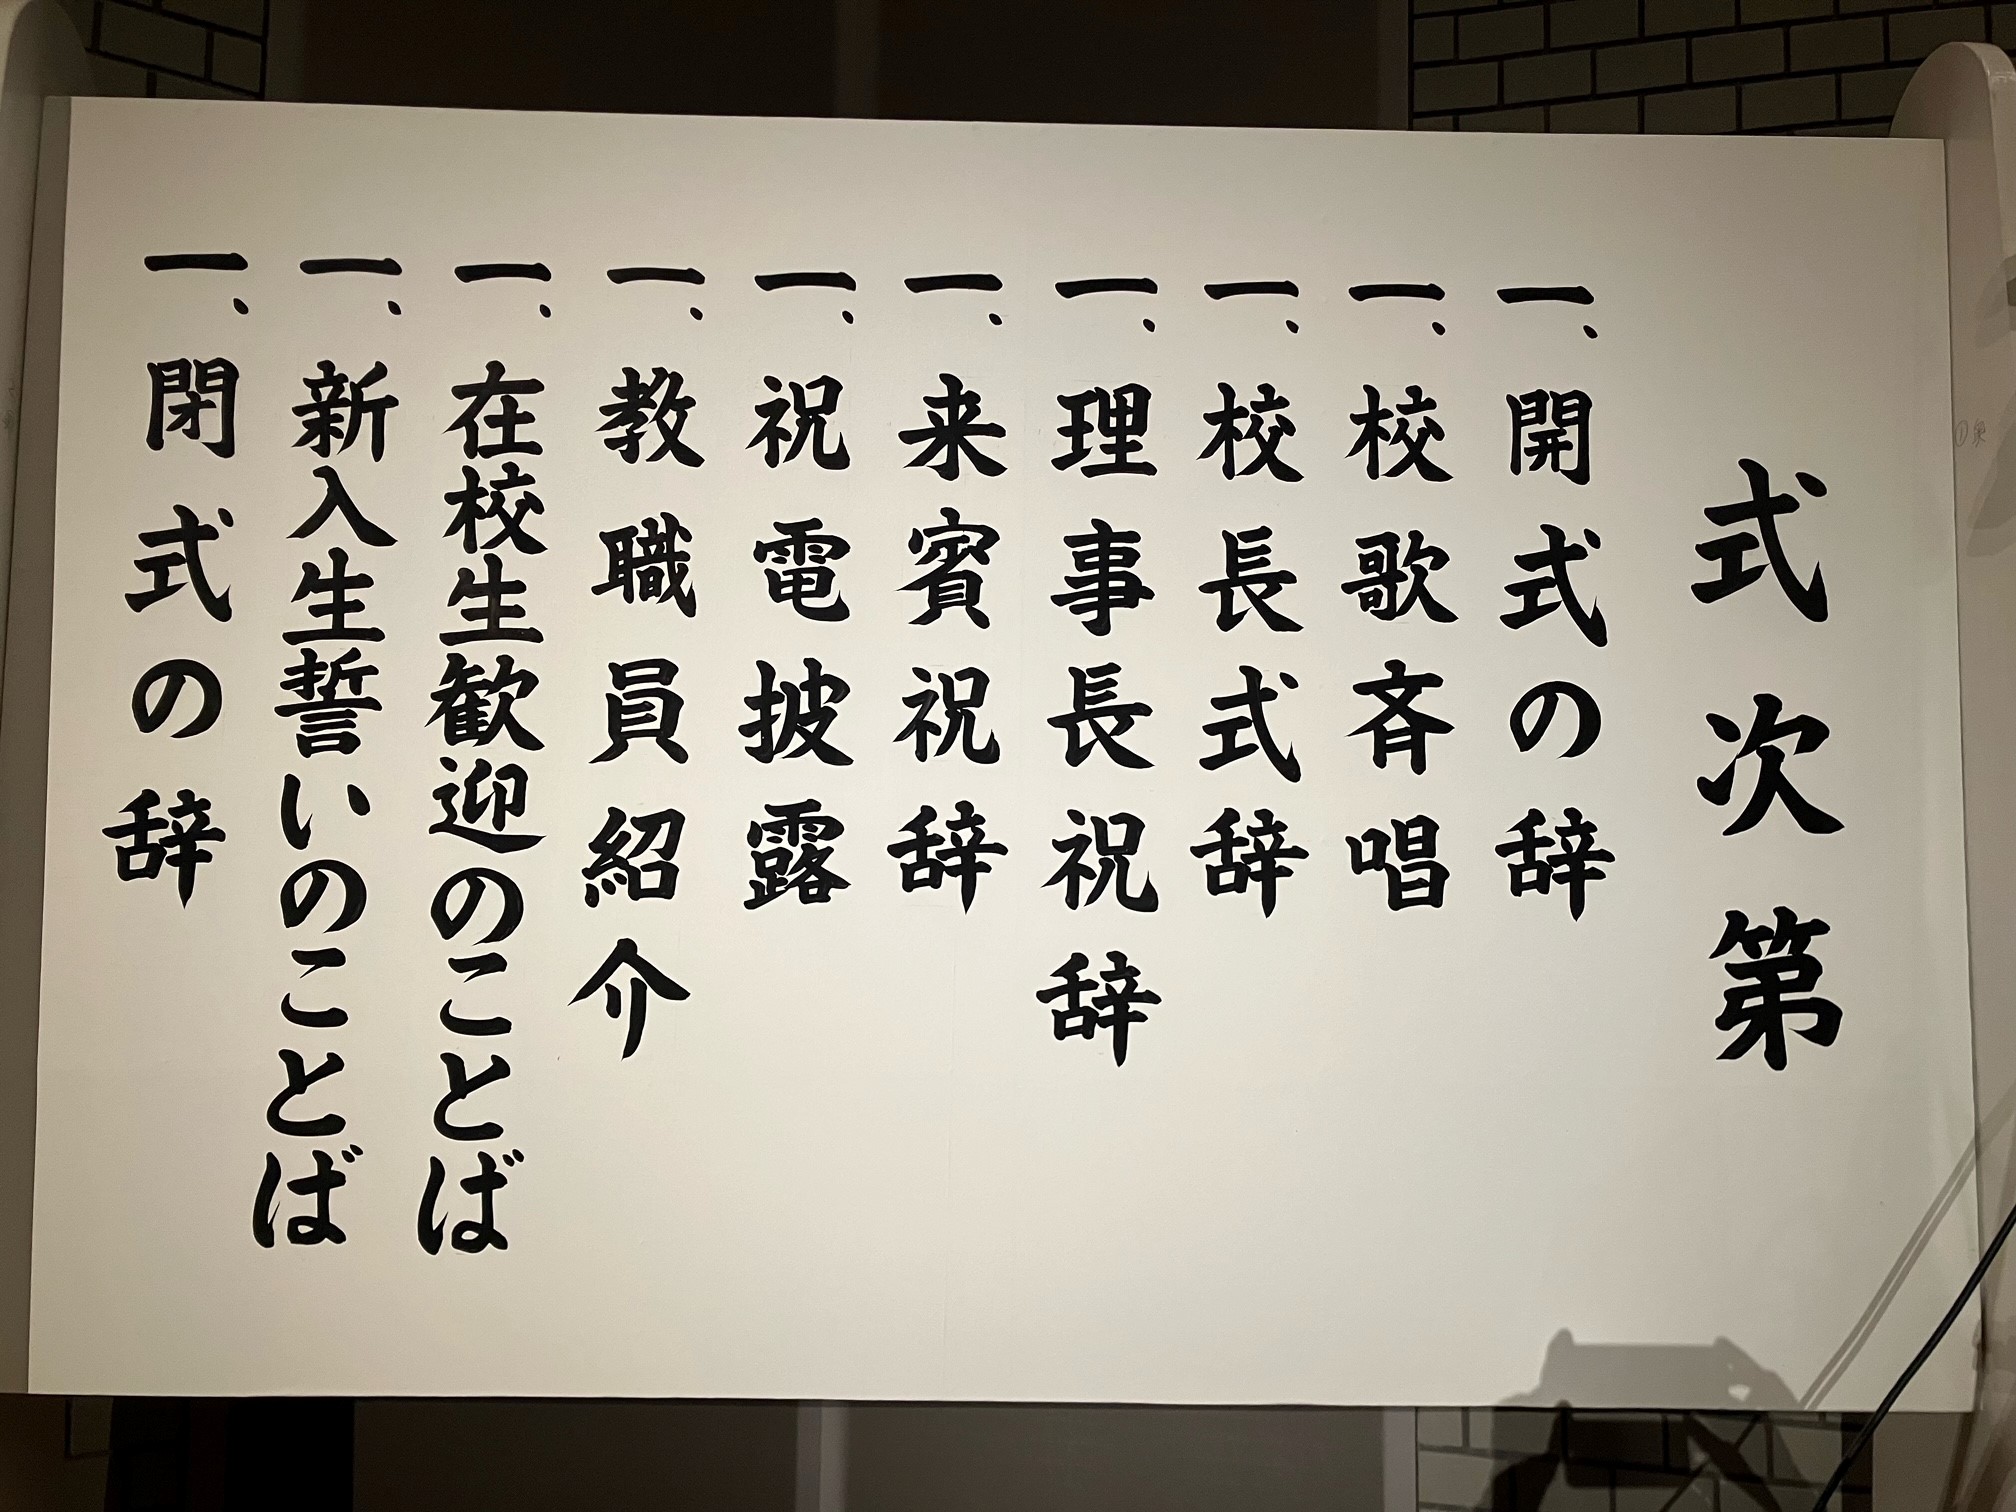 式次第
一、開式の辞
一、校歌斉唱
一、校長式辞
一、理事長祝辞
一、来賓祝辞
一、祝電披露
一、教職員紹介
一、在校生歓迎のことば
一、新入生誓いのことば
一、閉式の辞